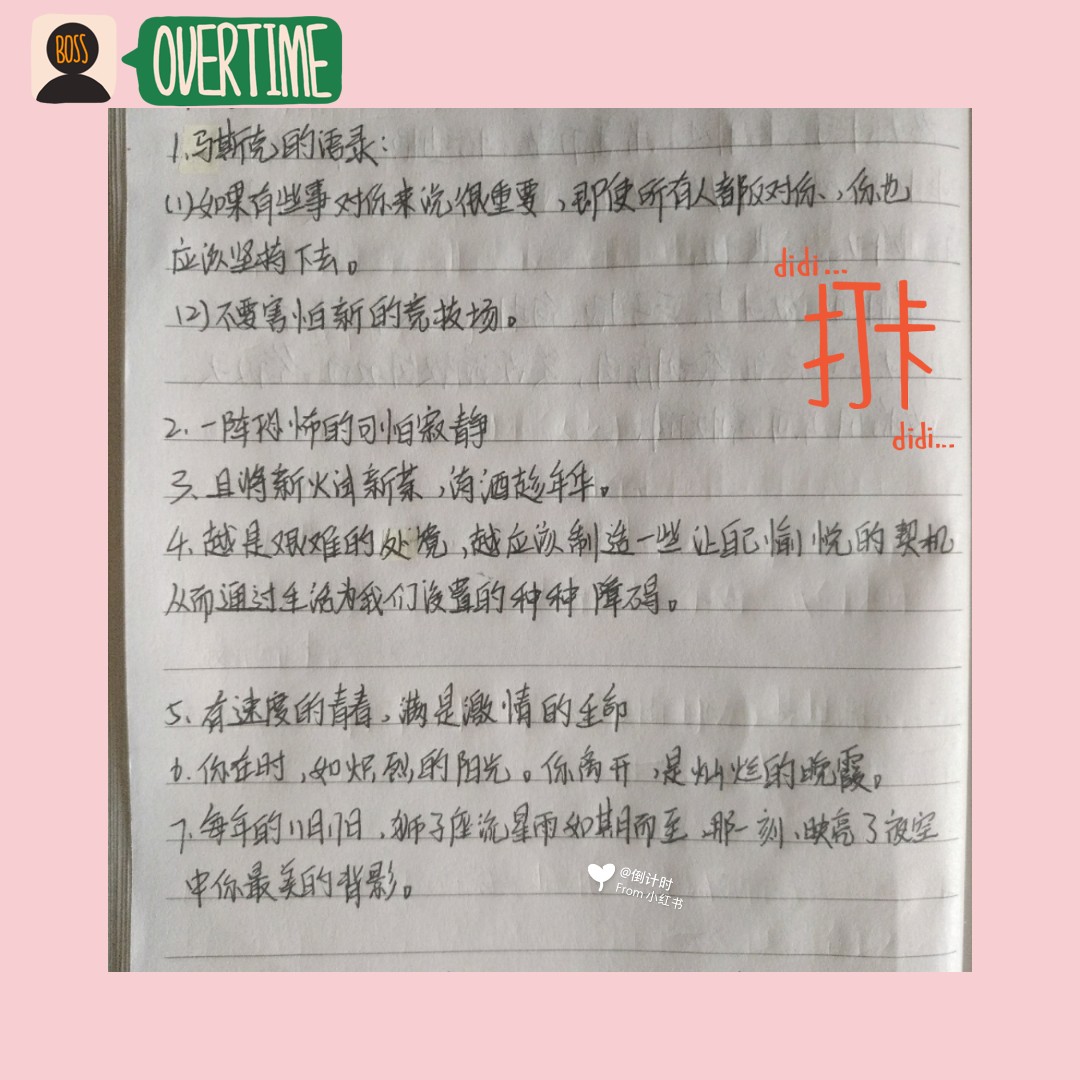 BOSS
OVERTIME
1.马斯克的语录:
(1)如果有些事对你来说很重要,即使所有人都反对你、,你也
应该坚持下去。
(2)不要害怕新的竞技场。
didi...
打卡
didi...
2.一阵恐怖的可怕寂静
3、且将新火试新茶,诗酒趁年华。
4.越是艰难的处境,越应该制造一些让自己愉悦的契机
从而通过生活为我们设置的种种障碍。
5、有速度的青春,满是激情的生命
6.你在时,如炽烈的阳光。你离开,是灿烂的晚霞。
7.每年的11月17日,狮子座流星雨如期而至,那一刻、映亮了夜空
中你最美的背影。
@倒计时
From 小红书